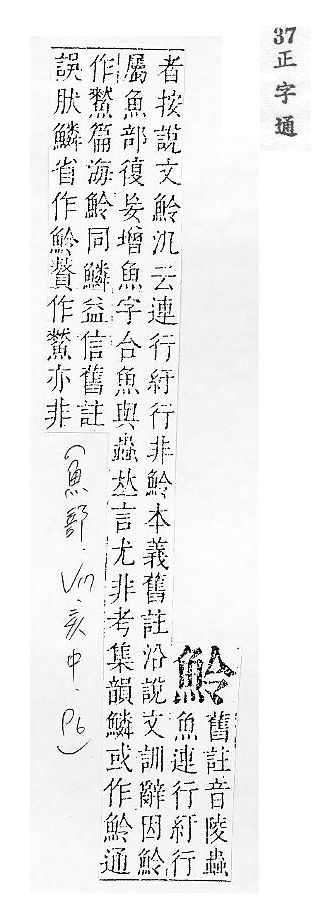 37正字通
魿
舊註音陵蟲
魚連行紆行
者按說文魿汎云連行紆行非魿本義舊註沿說文訓辭因魿
屬魚部復妄增魚字合魚與蟲竝言尤非考集韻鱗或作魿通
作篇海魿同鱗益信舊註
誤肰鱗省作魿贅作亦非
(魚部.Vin.亥中.P6)